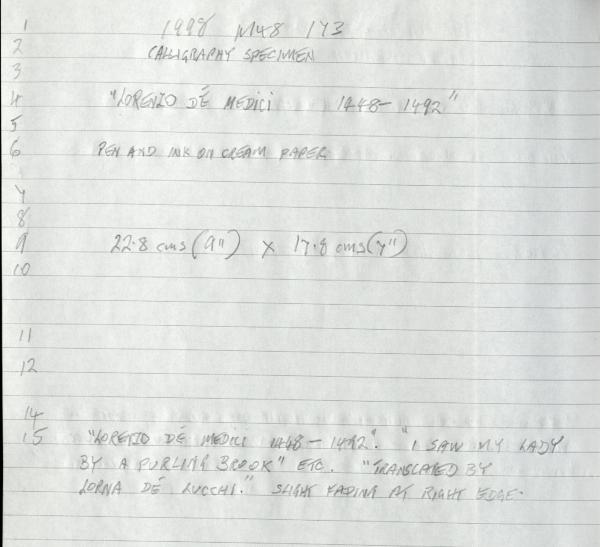 1 1998 M48 173
2 CALLIGRAPHY SPECIMEN
3
4 "LORENZO DÉ MEDICI 1448-1492"
5
6 PEN AND INK ON CREAM PAPER
7
8
9 22.8 cms (9") X 17.8 cms (7")
10
11
12
14
15 "LORENZO DÉ MEDICI 1448-1492". "I SAW MY LADY
BY A PURLING BROOK" ETC. "TRANSLATED BY
LORNA DÉ LUCCHI." SLIGHT FADING AT RIGHT EDGE.